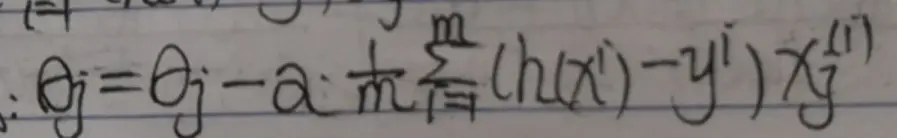 ∴ θj = θj − a · 1/m ∑_{i=1}^{m} (h(x^i) − y^i) x_j^{(i)}